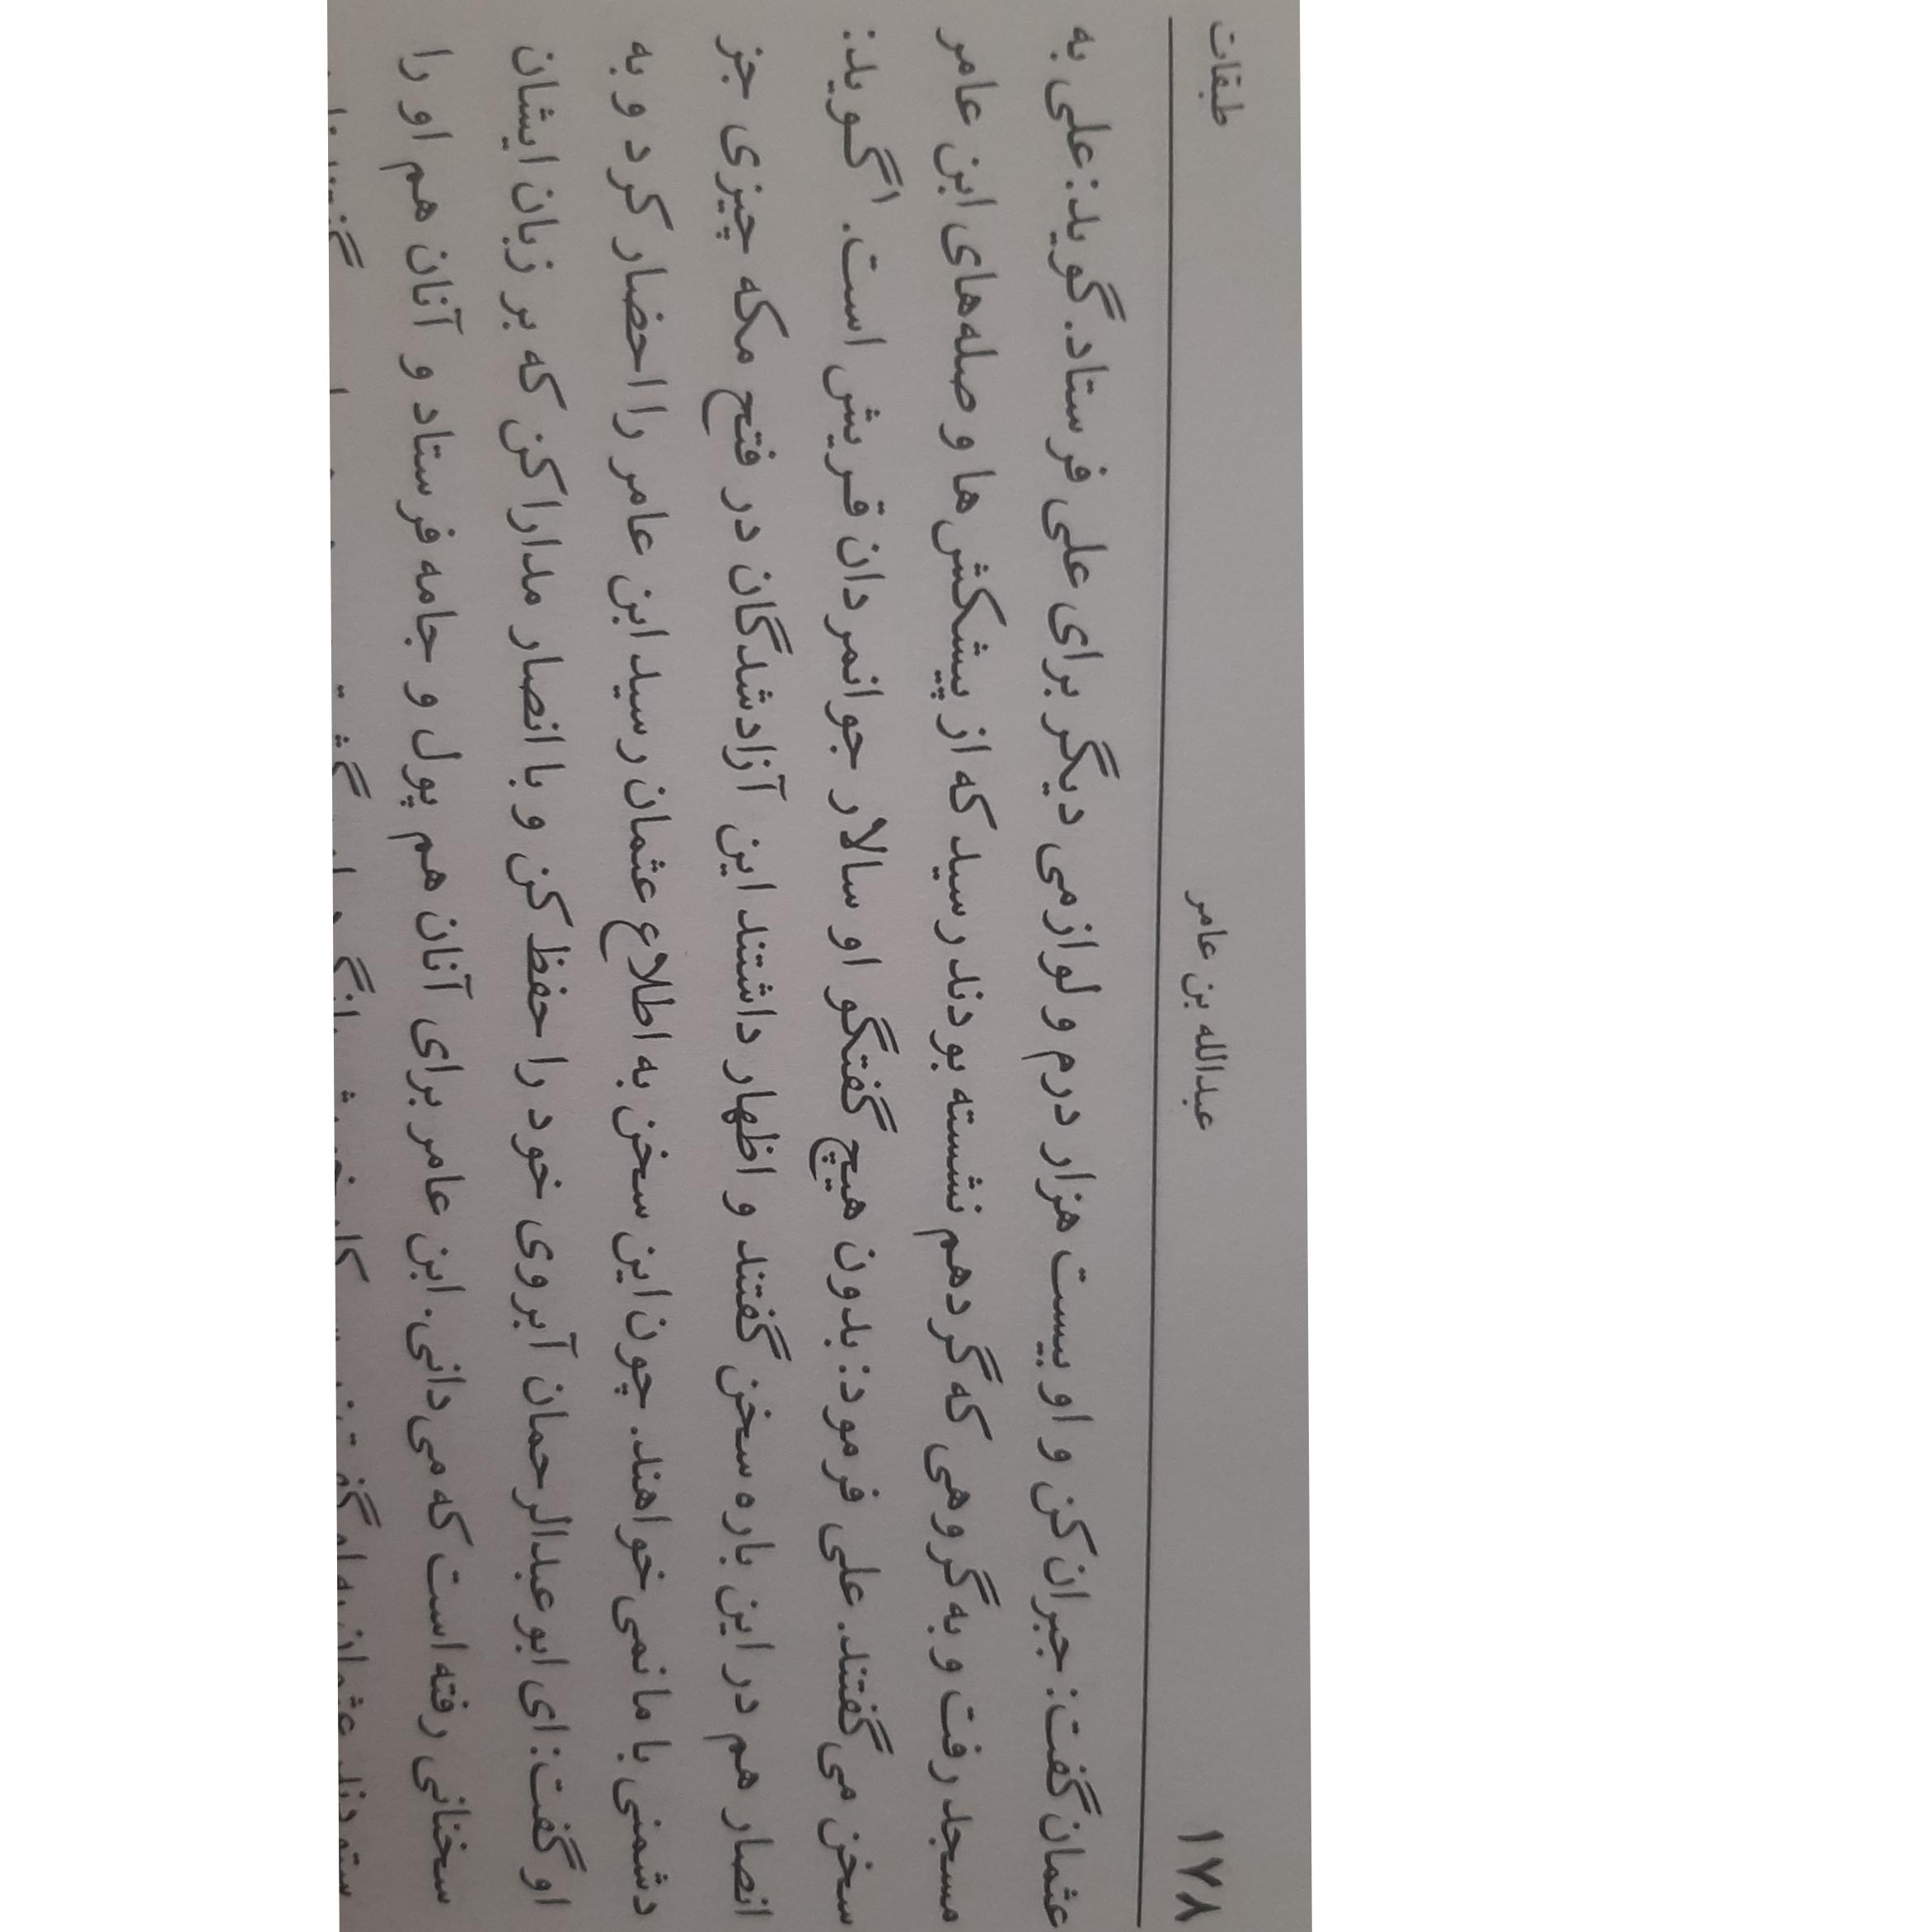 ۱۷۸ عبدالله بن عامر طبقات
عثمان گفت: جبران کن و او بیست هزار درم و لوازمی دیگر برای علی فرستاد. گوید: علی به
مسجد رفت و به گروهی که گرد هم نشسته بودند رسید که از پیشکش‌ها و صله‌های ابن عامر
سخن می‌گفتند. علی فرمود: بدون هیچ گفتگو او سالار جوانمردان قریش است. اگوید:
انصار هم در این باره سخن گفتند و اظهار داشتند این آزادشدگان در فتح مکه چیزی جز
دشمنی با ما نمی‌خواهند. چون این سخن به اطلاع عثمان رسید ابن عامر را احضار کرد و به
او گفت: ای ابو عبدالرحمان آبروی خود را حفظ کن و با انصار مدارا کن که بر زبان ایشان
سخنانی رفته است که می‌دانی. ابن عامر برای آنان هم پول و جامه فرستاد و آنان هم او را
ستودند عثمان به او گفت